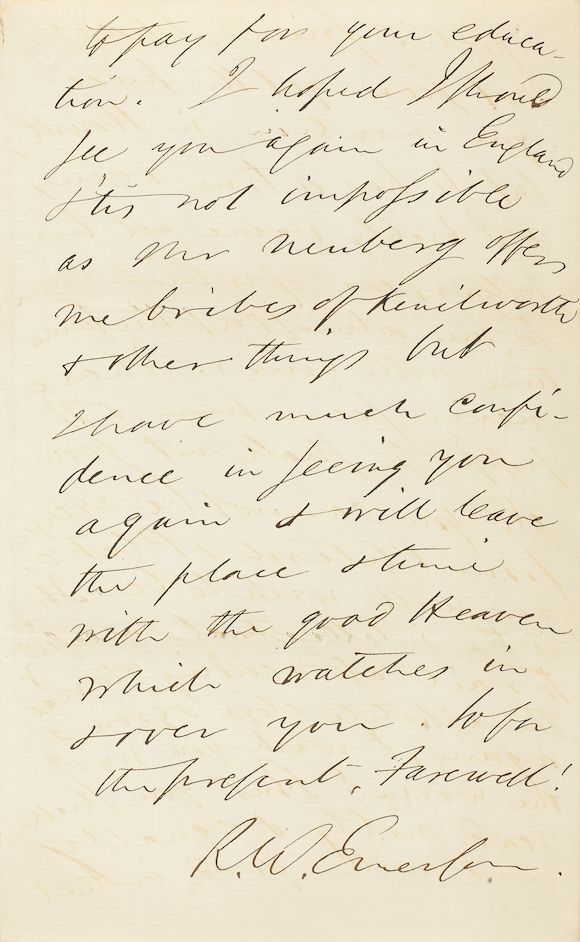 to pay for your educa-
tion. I hoped I should
see you again in England
& 'tis not impossible
as Mr Neuberg offers
me bribes of Kenilworth
& other things but
I have much confi-
dence in seeing you
again & will leave
the place & time
with the good Heaven
which watches in
& over you. So for
the present, Farewell!
R. W. Emerson.